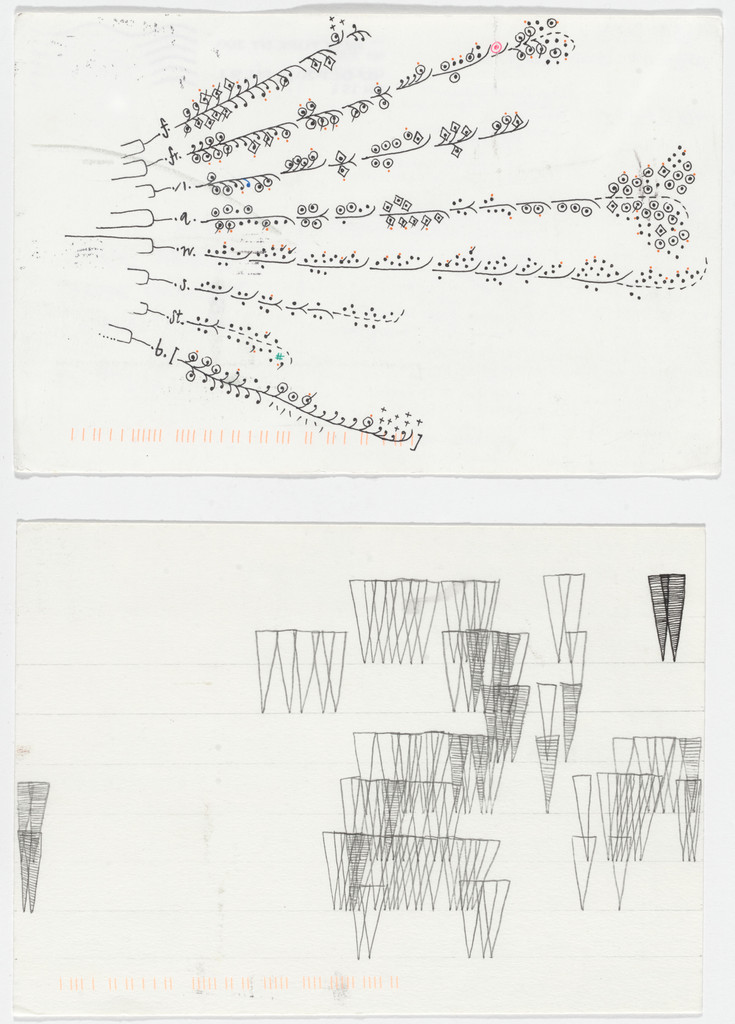 f.
fr.
.v1.
.a.
.w.
.s.
.st.
.b.[ ]
#